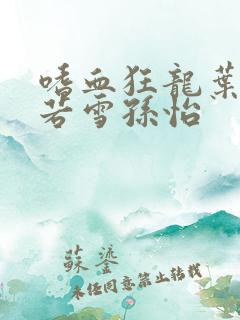 嗜血狂龍葉
若雪孫怡
蘇鎏
未任同意禁止转载